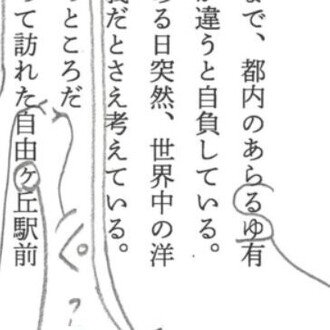 まで、都内のあらるゆ有
が違うと自負している。
る日突然、世界中の洋
だとさえ考えている。
ところだ
って訪れた自由ヶ丘駅前